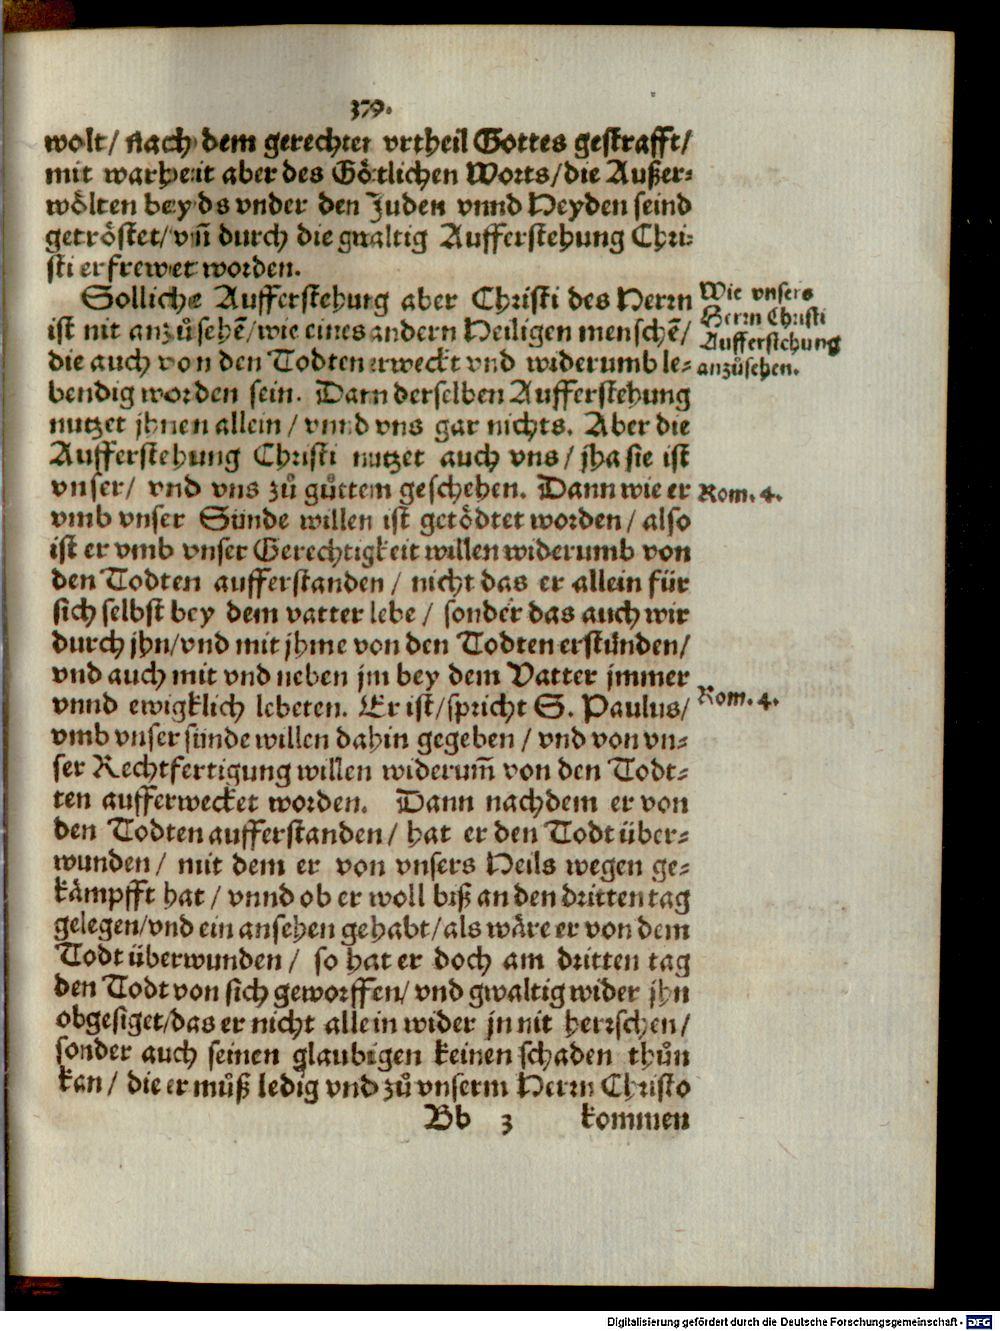 379.
wolt/ nach dem gerechter vrtheil Gottes gestrafft/
mit warheit aber des Götlichen Worts/die Außer-
wölten beyds vnder den Juden vnnd Heyden seind
getröstet/vn̄ durch die gwaltig Aufferstehung Chri-
sti erfrewet worden.
Solliche Aufferstehung aber Christi des Herrn
ist nit anzůsehē/wie eines andern Heiligen menschē/
die auch von den Todten erweckt vnd widerumb le-
bendig worden sein. Dann derselben Aufferstehung
nutzet jhnen allein/ vnnd vns gar nichts. Aber die
Aufferstehung Christi nutzet auch vns/ jha sie ist
vnser/ vnd vns zů gůttem geschehen. Dann wie er
vmb vnser Sünde willen ist getödtet worden/ also
ist er vmb vnser Gerechtigkeit willen widerumb von
den Todten aufferstanden/ nicht das er allein für
sich selbst bey dem vatter lebe/ sonder das auch wir
durch jhn/vnd mit jhme von den Todten erstünden/
vnd auch mit vnd neben jm bey dem Vatter jmmer
vnnd ewigklich lebeten. Er ist/spricht S. Paulus/
vmb vnser sünde willen dahin gegeben/ vnd von vn-
ser Rechtfertigung willen widerum̄ von den Todt-
ten aufferwecket worden. Dann nachdem er von
den Todten aufferstanden/ hat er den Todt über-
wunden/ mit dem er von vnsers Heils wegen ge-
kämpfft hat/ vnnd ob er woll biß an den dritten tag
gelegen/vnd ein ansehen gehabt/als wäre er von dem
Todt überwunden/ so hat er doch am dritten tag
den Todt von sich geworffen/ vnd gwaltig wider jhn
obgesiget/das er nicht allein wider jn nit herrschen/
sonder auch seinen glaubigen keinen schaden thůn
kan/ die er můß ledig vnd zů vnserm Herrn Christo
Bb 3 kommen
Wie vnsers
Herrn Christi
Aufferstehung
anzůsehen.
Rom. 4.
Rom. 4.
Digitalisierung gefördert durch die Deutsche Forschungsgemeinschaft - DFG